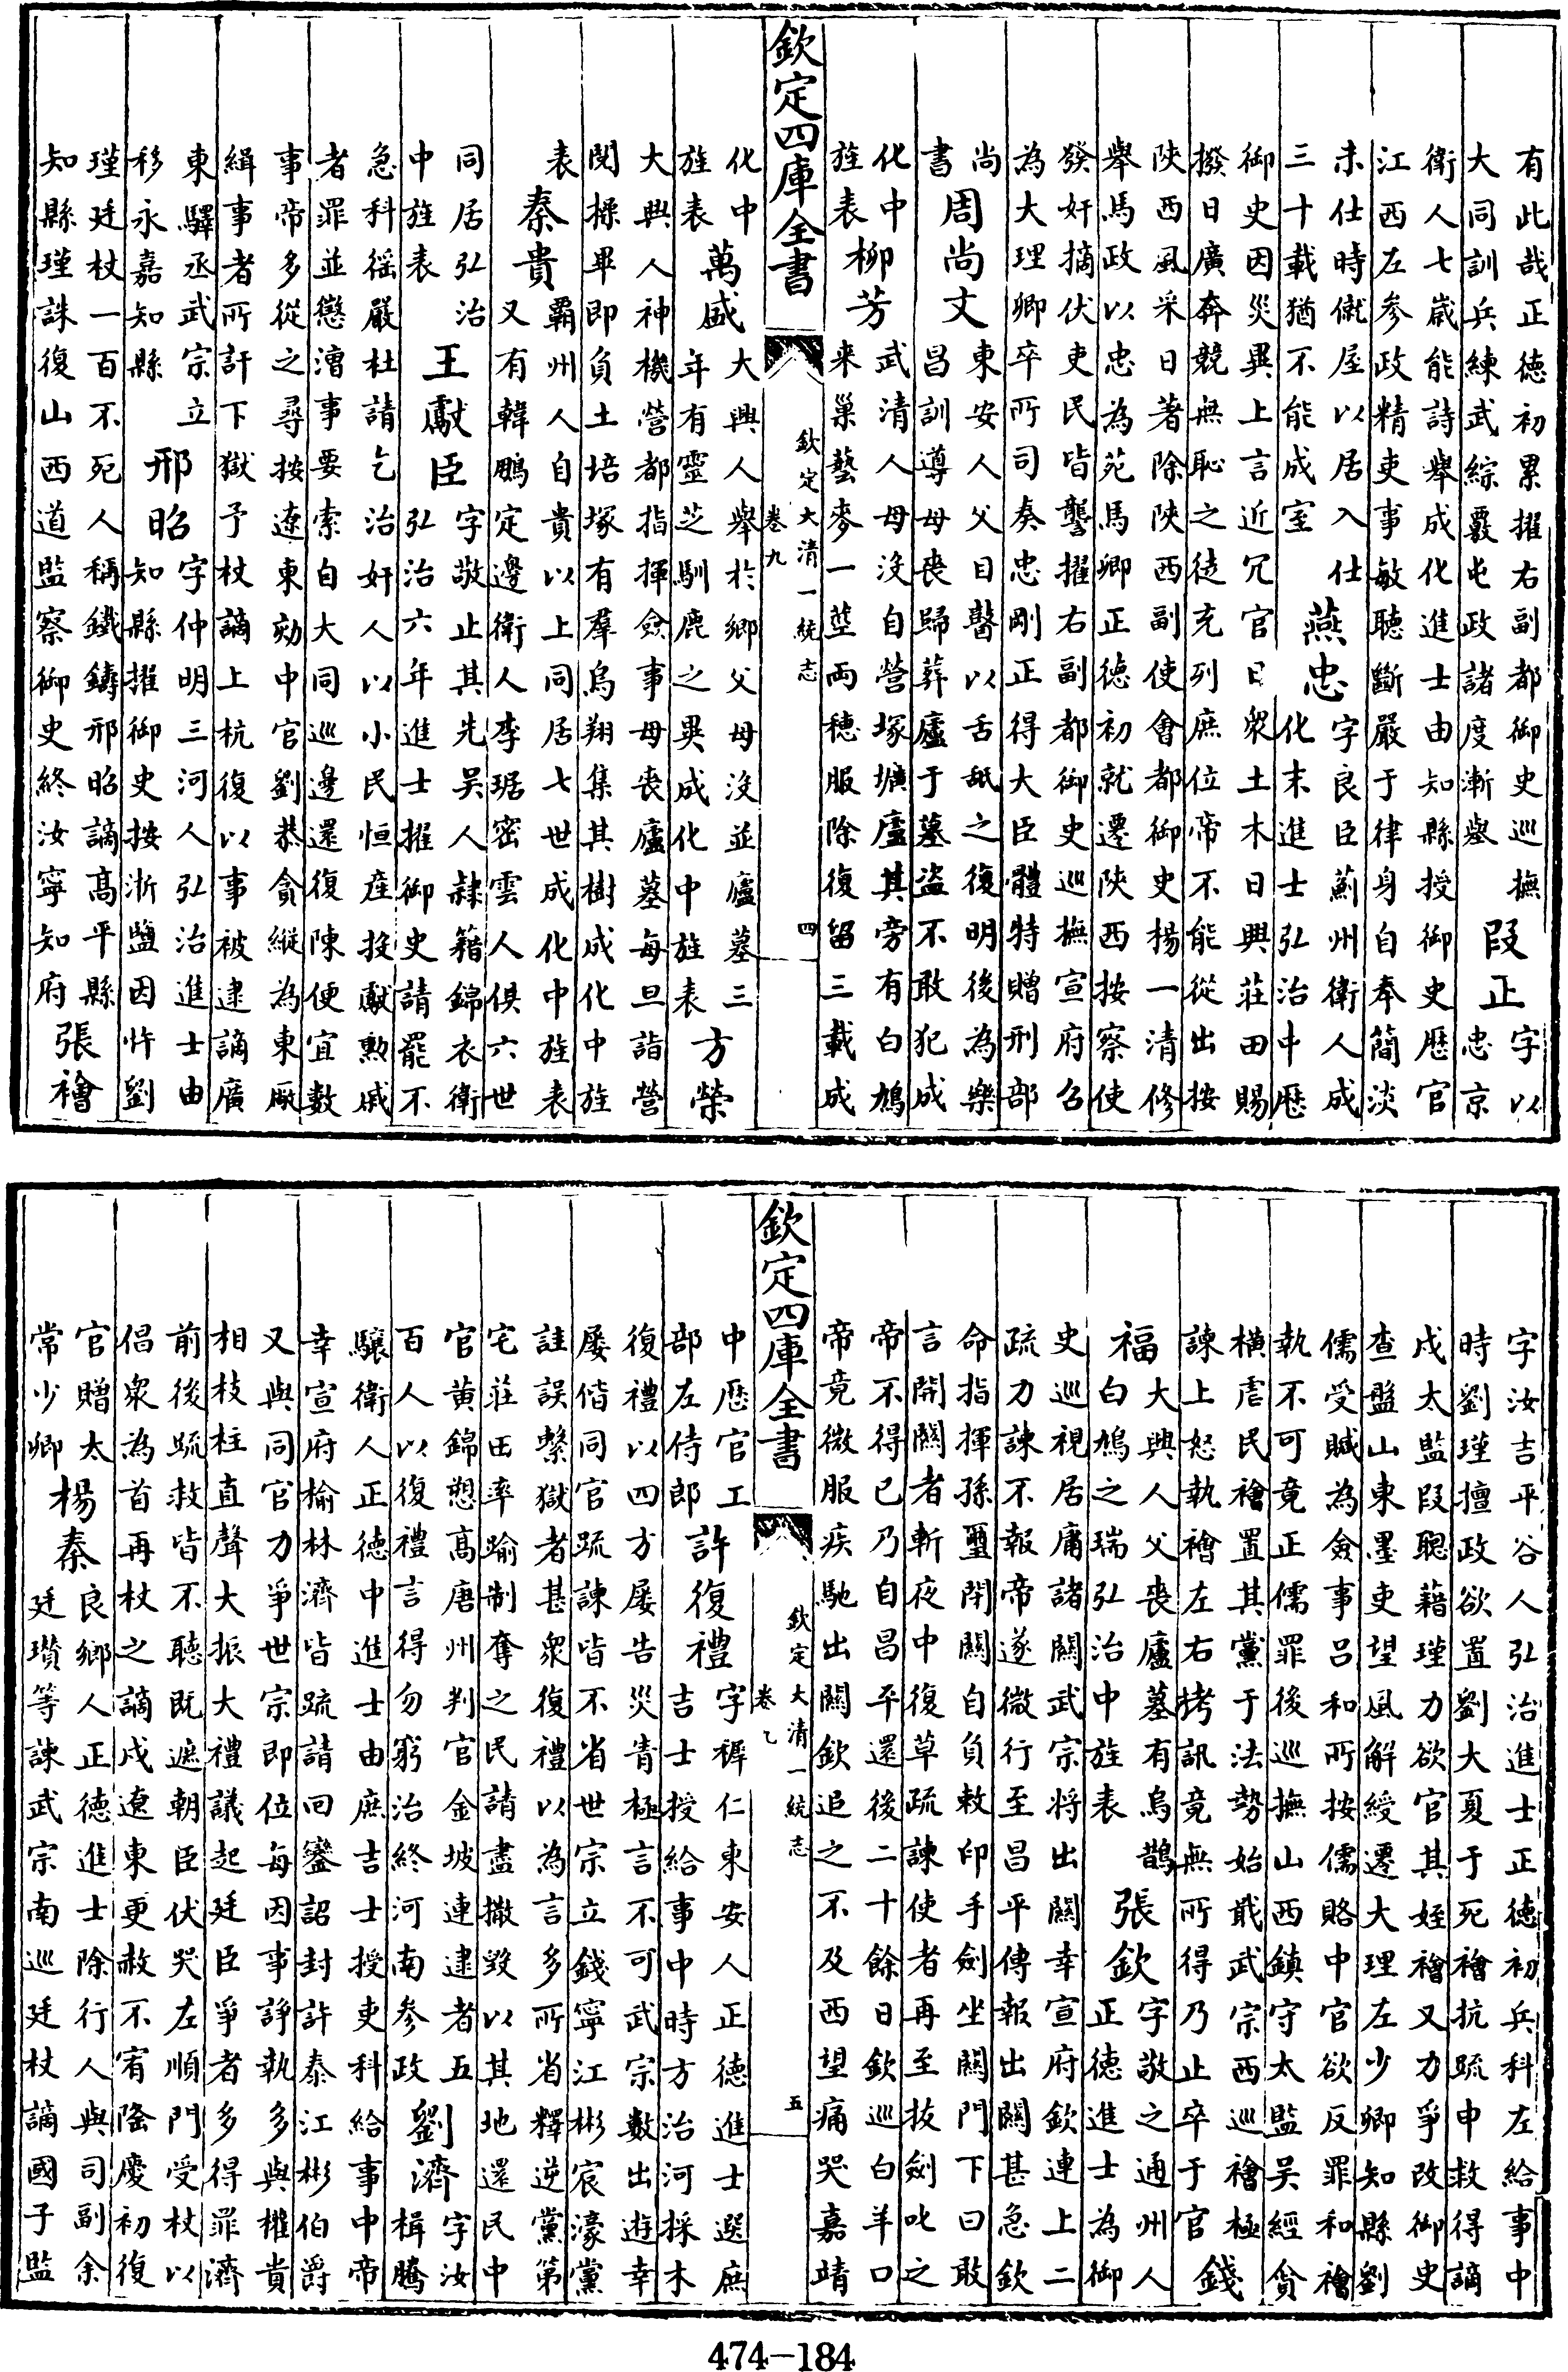 有此哉正德初累擢右副都御史巡撫
大同訓兵練武綜覈屯政諸度漸舉
段正
字以
忠京
衛人七歳能詩舉成化進士由知縣授御史歴官
江西左參政精吏事敏聽斷嚴于律身自奉簡淡
未仕時僦屋以居入仕
三十載猶不能成室
燕忠
字良臣薊州衛人成
化末進士弘治中歴
御史因災異上言近冗官日衆土木日興莊田賜
撥日廣奔競無恥之徒充列庶位帝不能從出按
陜西風采日著除陜西副使會都御史楊一清修
舉馬政以忠為苑馬卿正德初就遷陜西按察使
發奸摘伏吏民皆讋擢右副都御史巡撫宣府召
為大理卿卒所司奏忠剛正得大臣體特贈刑部
尚
書
周尚文
東安人父目瞖以舌舐之復明後為樂
昌訓導母喪歸葬廬于墓盗不敢犯成
化中
旌表
柳芳
武清人母沒自營塚壙廬其旁有白鳩
来巢藝麥一莖兩穗服除復留三載成
欽定四庫全書
欽定大清一統志
卷九
四
化中
旌表
萬盛
大興人舉於鄉父母沒並廬墓三
年有靈芝馴鹿之異成化中旌表
方榮
大興人神機營都指揮僉事母喪廬墓每旦詣營
閱操畢即負土培塚有羣烏翔集其樹成化中旌
表
秦貴
覇州人自貴以上同居七世成化中旌表
又有韓鵬定邊衛人李琚密雲人俱六世
同居弘治
中旌表
王獻臣
字敬止其先吴人隷籍錦衣衛
弘治六年進士擢御史請罷不
急科徭嚴杜請乞治奸人以小民恒産投獻勲戚
者罪並懲漕事要索自大同巡邊還復陳便宜數
事帝多從之尋按遼東劾中官劉恭貪縱為東厰
緝事者所訐下獄予杖謫上杭復以事被逮謫廣
東驛丞武宗立
移永嘉知縣
邢昭
字仲明三河人弘治進士由
知縣擢御史按浙鹽因忤劉
瑾廷杖一百不死人稱鐵鑄邢昭謫高平縣
知縣瑾誅復山西道監察御史終汝寧知府
張襘
字汝吉平谷人弘治進士正德初兵科左給事中
時劉瑾擅政欲置劉大夏于死襘抗疏申救得謫
戍太監段聰藉瑾力欲官其姪襘又力爭改御史
查盤山東墨吏望風解綬遷大理左少卿知縣劉
儒受贓為僉事吕和所按儒賂中官欲反罪和襘
執不可竟正儒罪後巡撫山西鎮守太監吴經貪
横虐民襘置其黨于法勢始戢武宗西巡襘極
諫上怒執襘左右拷訊竟無所得乃止卒于官
錢福
大興人父喪廬墓有烏鵲
白鳩之瑞弘治中旌表
張欽
字敬之通州人
正德進士為御
史巡視居庸諸關武宗將出關幸宣府欽連上二
疏力諫不報帝遂微行至昌平傳報出關甚急欽
命指揮孫璽閉關自負敕印手劍坐關門下曰敢
言開關者斬夜中復草疏諫使者再至拔劍叱之
帝不得已乃自昌平還後二十餘日欽巡白羊口
帝竟微服疾馳出關欽追之不及西望痛哭嘉靖
欽定四庫全書
欽定大清一統志
卷
五
中歴官工
部左侍郎
許復禮
字穉仁東安人正德進士選庶
吉士授給事中時方治河採木
復禮以四方屡告災眚極言不可武宗數出遊幸
屡偕同官疏諫皆不省世宗立錢寧江彬宸濠黨
詿誤繫獄者甚衆復禮以為言多所省釋逆黨第
宅莊田率踰制奪之民請盡撤毁以其地還民中
官黄錦愬高唐州判官金坡連逮者五
百人以復禮言得勿窮治終河南參政
劉濟
字汝
楫騰
驤衛人正德中進士由庶吉士授吏科給事中帝
幸宣府榆林濟皆疏請回鑾詔封許泰江彬伯爵
又與同官力爭世宗即位每因事諍執多與權貴
相枝柱直聲大振大禮議起廷臣爭者多得罪濟
前後疏救皆不聽既遮朝臣伏哭左順門受杖以
倡衆為首再杖之謫戍遼東更赦不宥隆慶初復
官贈太
常少卿
楊秦
良鄉人正德進士除行人與司副余
廷瓚等諫武宗南巡廷杖謫國子監
474－184